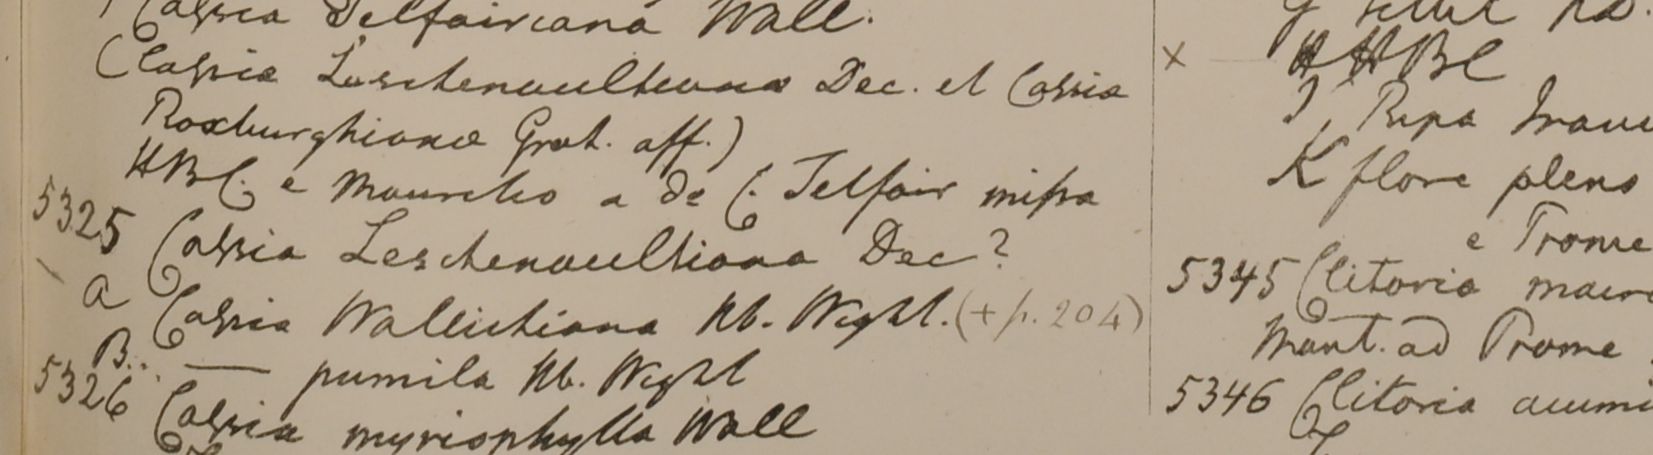 Cassia Telfairiana Wall.
(Cassiae Leschenaultianae Dec. et Cassiae
Roxburghianae Grah. aff.)
HBC. e Mauritio a de C. Telfair missa
5325 Cassia Leschenaultiana Dec?
a Cassia Wallichiana Hb. Wight. (+ p. 204)
B. — pumila Hb. Wight
5326 Cassia myriophylla Wall
x — H HBC
J Ripa
K flore pleno
e Prome
5345 Clitoria
Mont. ad Prome
5346 Clitoria acumi